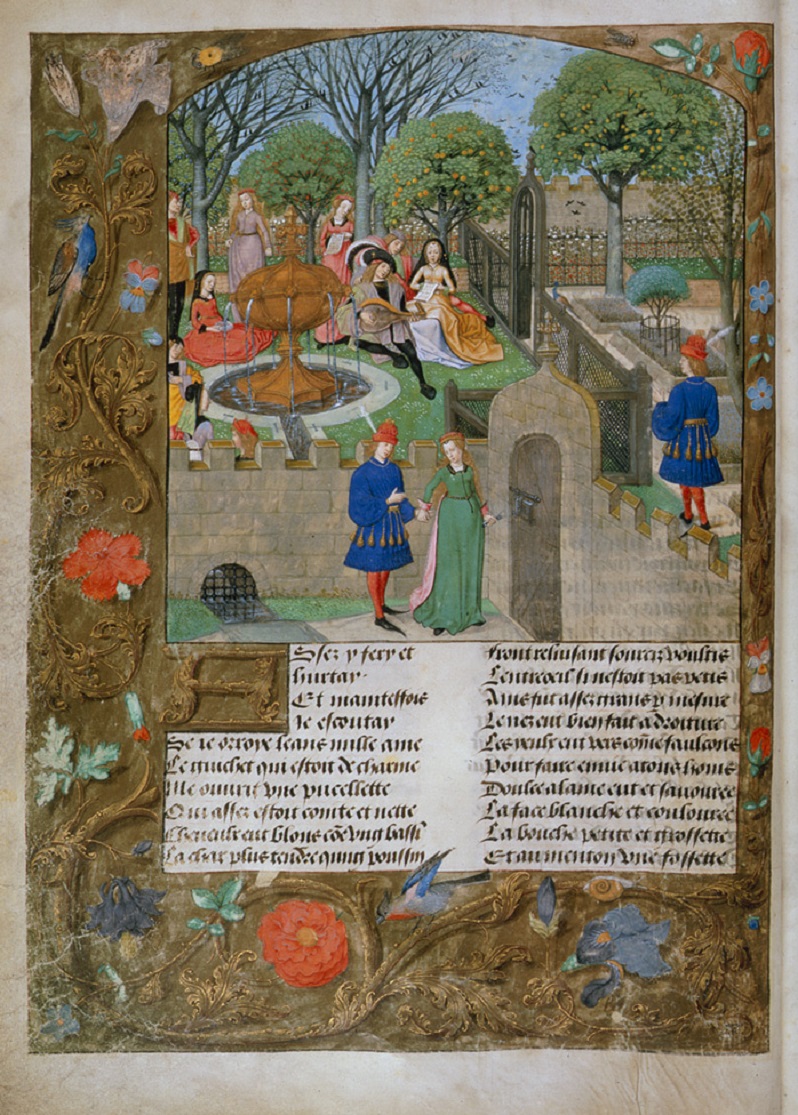 Assez y fery et
hurtay
Et maintesfois
Ie escoutay
Se ie orroye leans nulle ame
Le guichet qui estoit de charme
Me ouurit vne pucellette
Qui assez estoit cointe et nette
Cheueulx eut blons cõe vng bassĩ
La char plus tendre qung poussin
Front reluisant sourcilz voultis
Lentroeil si nestoit pas petis
Ains fut assez grans p mesure
Le nez eut bien fait a droiture
Les yeulx eut vers cõme faulcons
Pour faire enuie a tous homs
Doulce alame eut et sauouree
La face blanche et coulouree
La bouche petite et grossette
Et au menton vne fossette